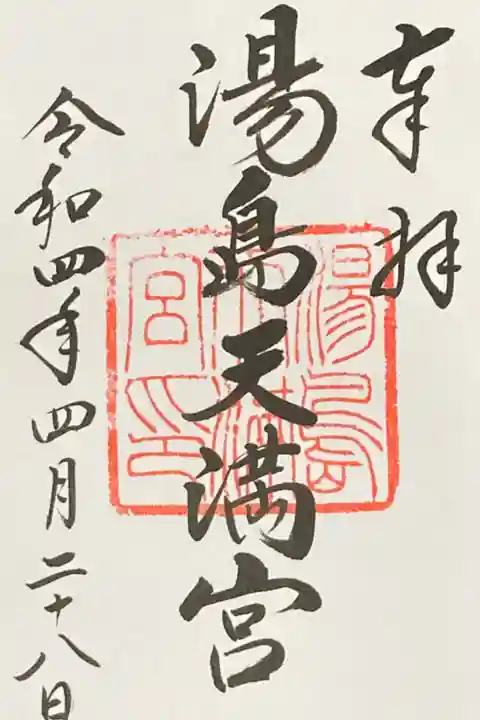 奉拝
湯島天満宮
湯島天満宮印
令和四年四月二十八日